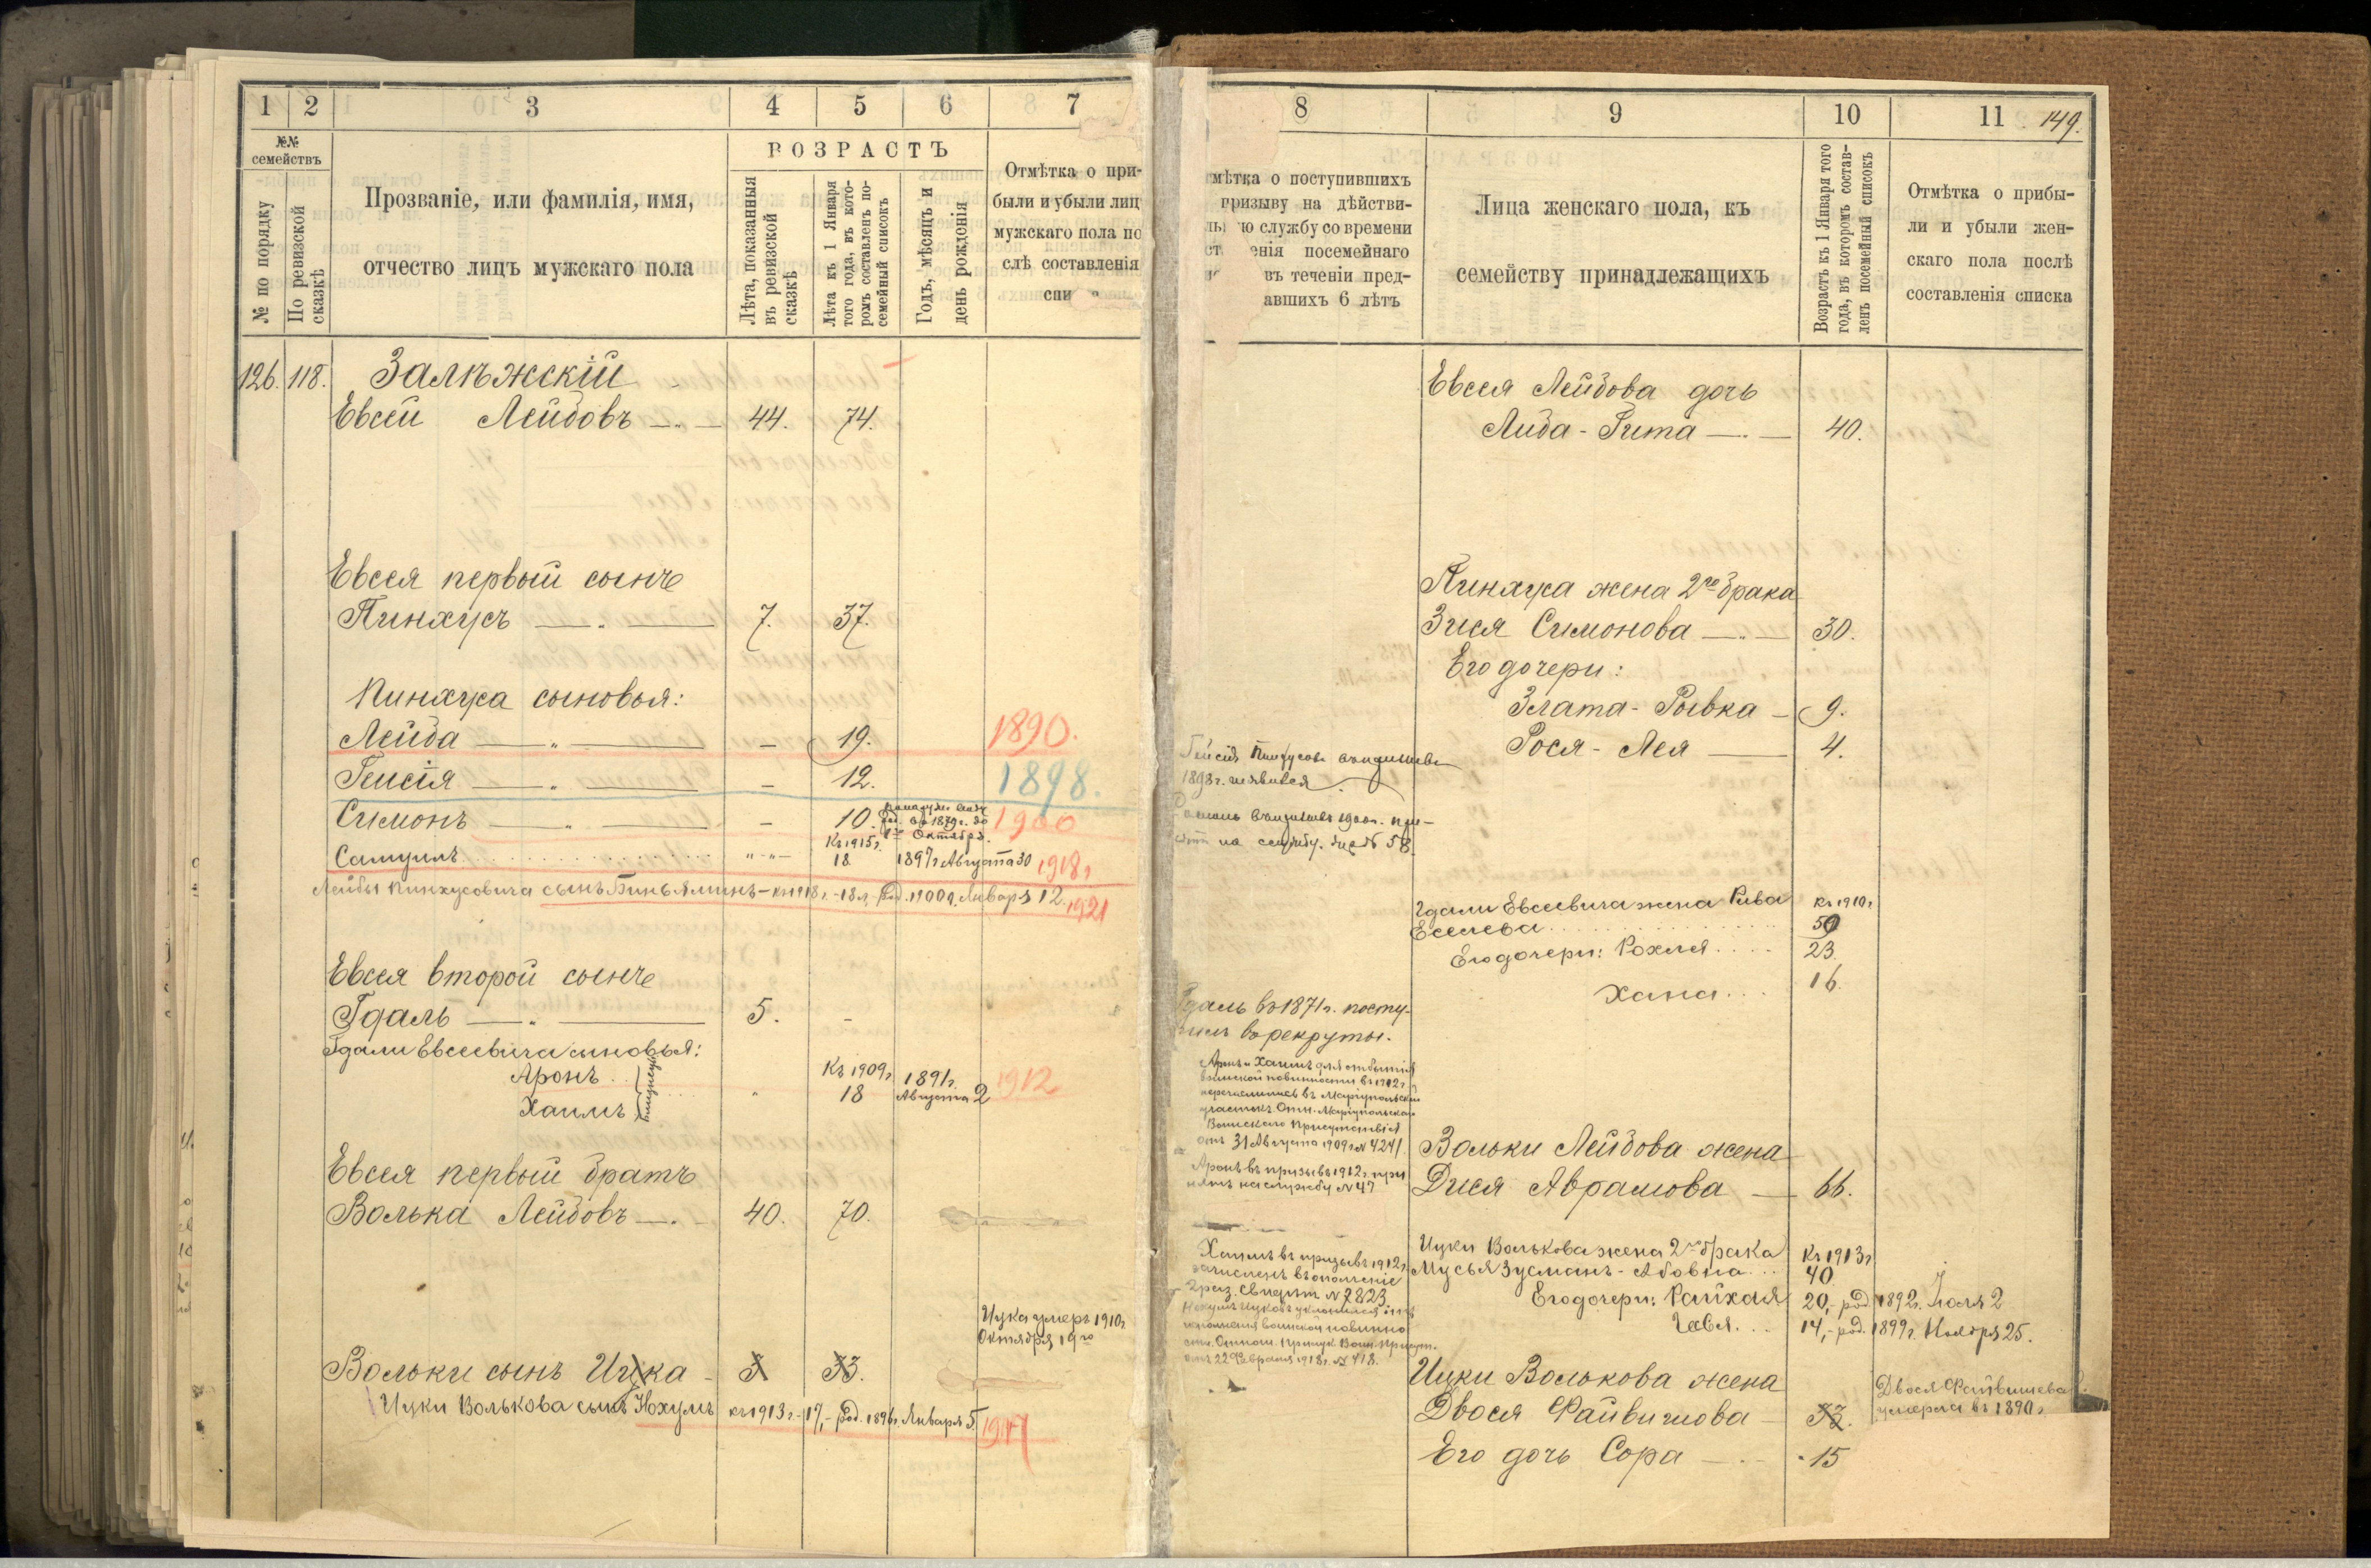 1 2 3 4 5 6 7
№№ семействъ
№ по порядку
По ревизской сказкѣ
Прозваніе, или фамилія, имя,
отчество лицъ мужскаго пола
ВОЗРАСТЪ
Лѣта, показанныя въ ревизской сказкѣ
Лѣта къ 1 Января того года, въ кото-ромъ составленъ по-семейный списокъ
Годъ, мѣсяцъ и день рожденія
Отмѣтка о при-
были и убыли лиц
мужскаго пола по
слѣ составленія
спи
126. 118. Залѣжскій
Евсей Лейбовъ 44. 74.
Евсея первый сынъ
Пинхусъ 7. 37.
Пинхуса сыновья:
Лейба – 19. 1890.
Генсія – 12. 1898.
Симонъ – 10. 1900
род. въ 1879 г. до
1го Октября.
Къ 1915 г.
Самуилъ 18 1897 г Августа 30 1918 г
Лейбы Пинхусовича сынъ Биньяминъ – къ 1918 г. - 18 л. род. 1900 г. Января 12. 1921
Евсея второй сынъ
Гдаль 5. –
Гдали Евсеевича сыновья:
Аронъ Къ 1909 г 1891 г. 1912
Хаимъ близнецы 18 Августа 2
Евсея первый братъ
Волька Лейбовъ 40. 70.
Ицка умеръ 1910 г
Октября 19го
Вольки сынъ Ицка 3 33.
Ицки Волькова сынъ Нохумъ къ 1913 г. - 17, - род. 1896 г. Января 5. 1917
8 9 10 11 149.
мѣтка о поступившихъ
призыву на дѣйстви-
ю службу со времени
енія посемейнаго
въ теченіи пред-
авшихъ 6 лѣтъ
Лица женскаго пола, къ
семейству принадлежащихъ
Возрастъ къ 1 Января того года, въ которомъ состав-ленъ посемейный списокъ
Отмѣтка о прибы-
ли и убыли жен-
скаго пола послѣ
составленія списка
Евсея Лейбова дочь
Либа-Гита 40.
Пинхуса жена 2го брака
Зися Симонова 30.
Его дочери:
Злата-Рывка 9.
Рося-Лея 4.
1898 г. неявился
на службу. 58.
Гдали Евсеевича жена Рива Къ 1910 г
Еселева 50
Его дочери: Рохля 23.
Хана 16.
Гдаль въ 1871 г. посту-
пилъ въ рекруты.
Аронъ и Хаимъ для отбытія
воинской повинности въ 1912 г.
перечислились въ Маріупольскій
участокъ. Отн. Маріупольскаго
Воинскаго Присутствія
отъ 31 Августа 1909 г № 4241.
Аронъ въ призывъ 1912 г. при
нятъ на службу № 47
Вольки Лейбова жена
Дися Абрамова 66.
Хаимъ въ призывъ 1912 г.
зачисленъ въ ополченіе
2 раз. Свидѣт № 2823
Нохумъ Ицковъ уклонился отъ
исполненія воинской повинно
отъ 22 Февраля 1918 г. № 418.
Ицки Волькова жена 2го брака Къ 1913 г
Мусья Зусманъ-Абовна 40
Его дочери: Райхля 20, - род. 1892 г. Іюля 2
14, - род. 1899 г. Ноября 25.
Ицки Волькова жена
Двося Файвишова 32.
Двося Файвишева
умерла въ 1890 г.
Его дочь Сора 15